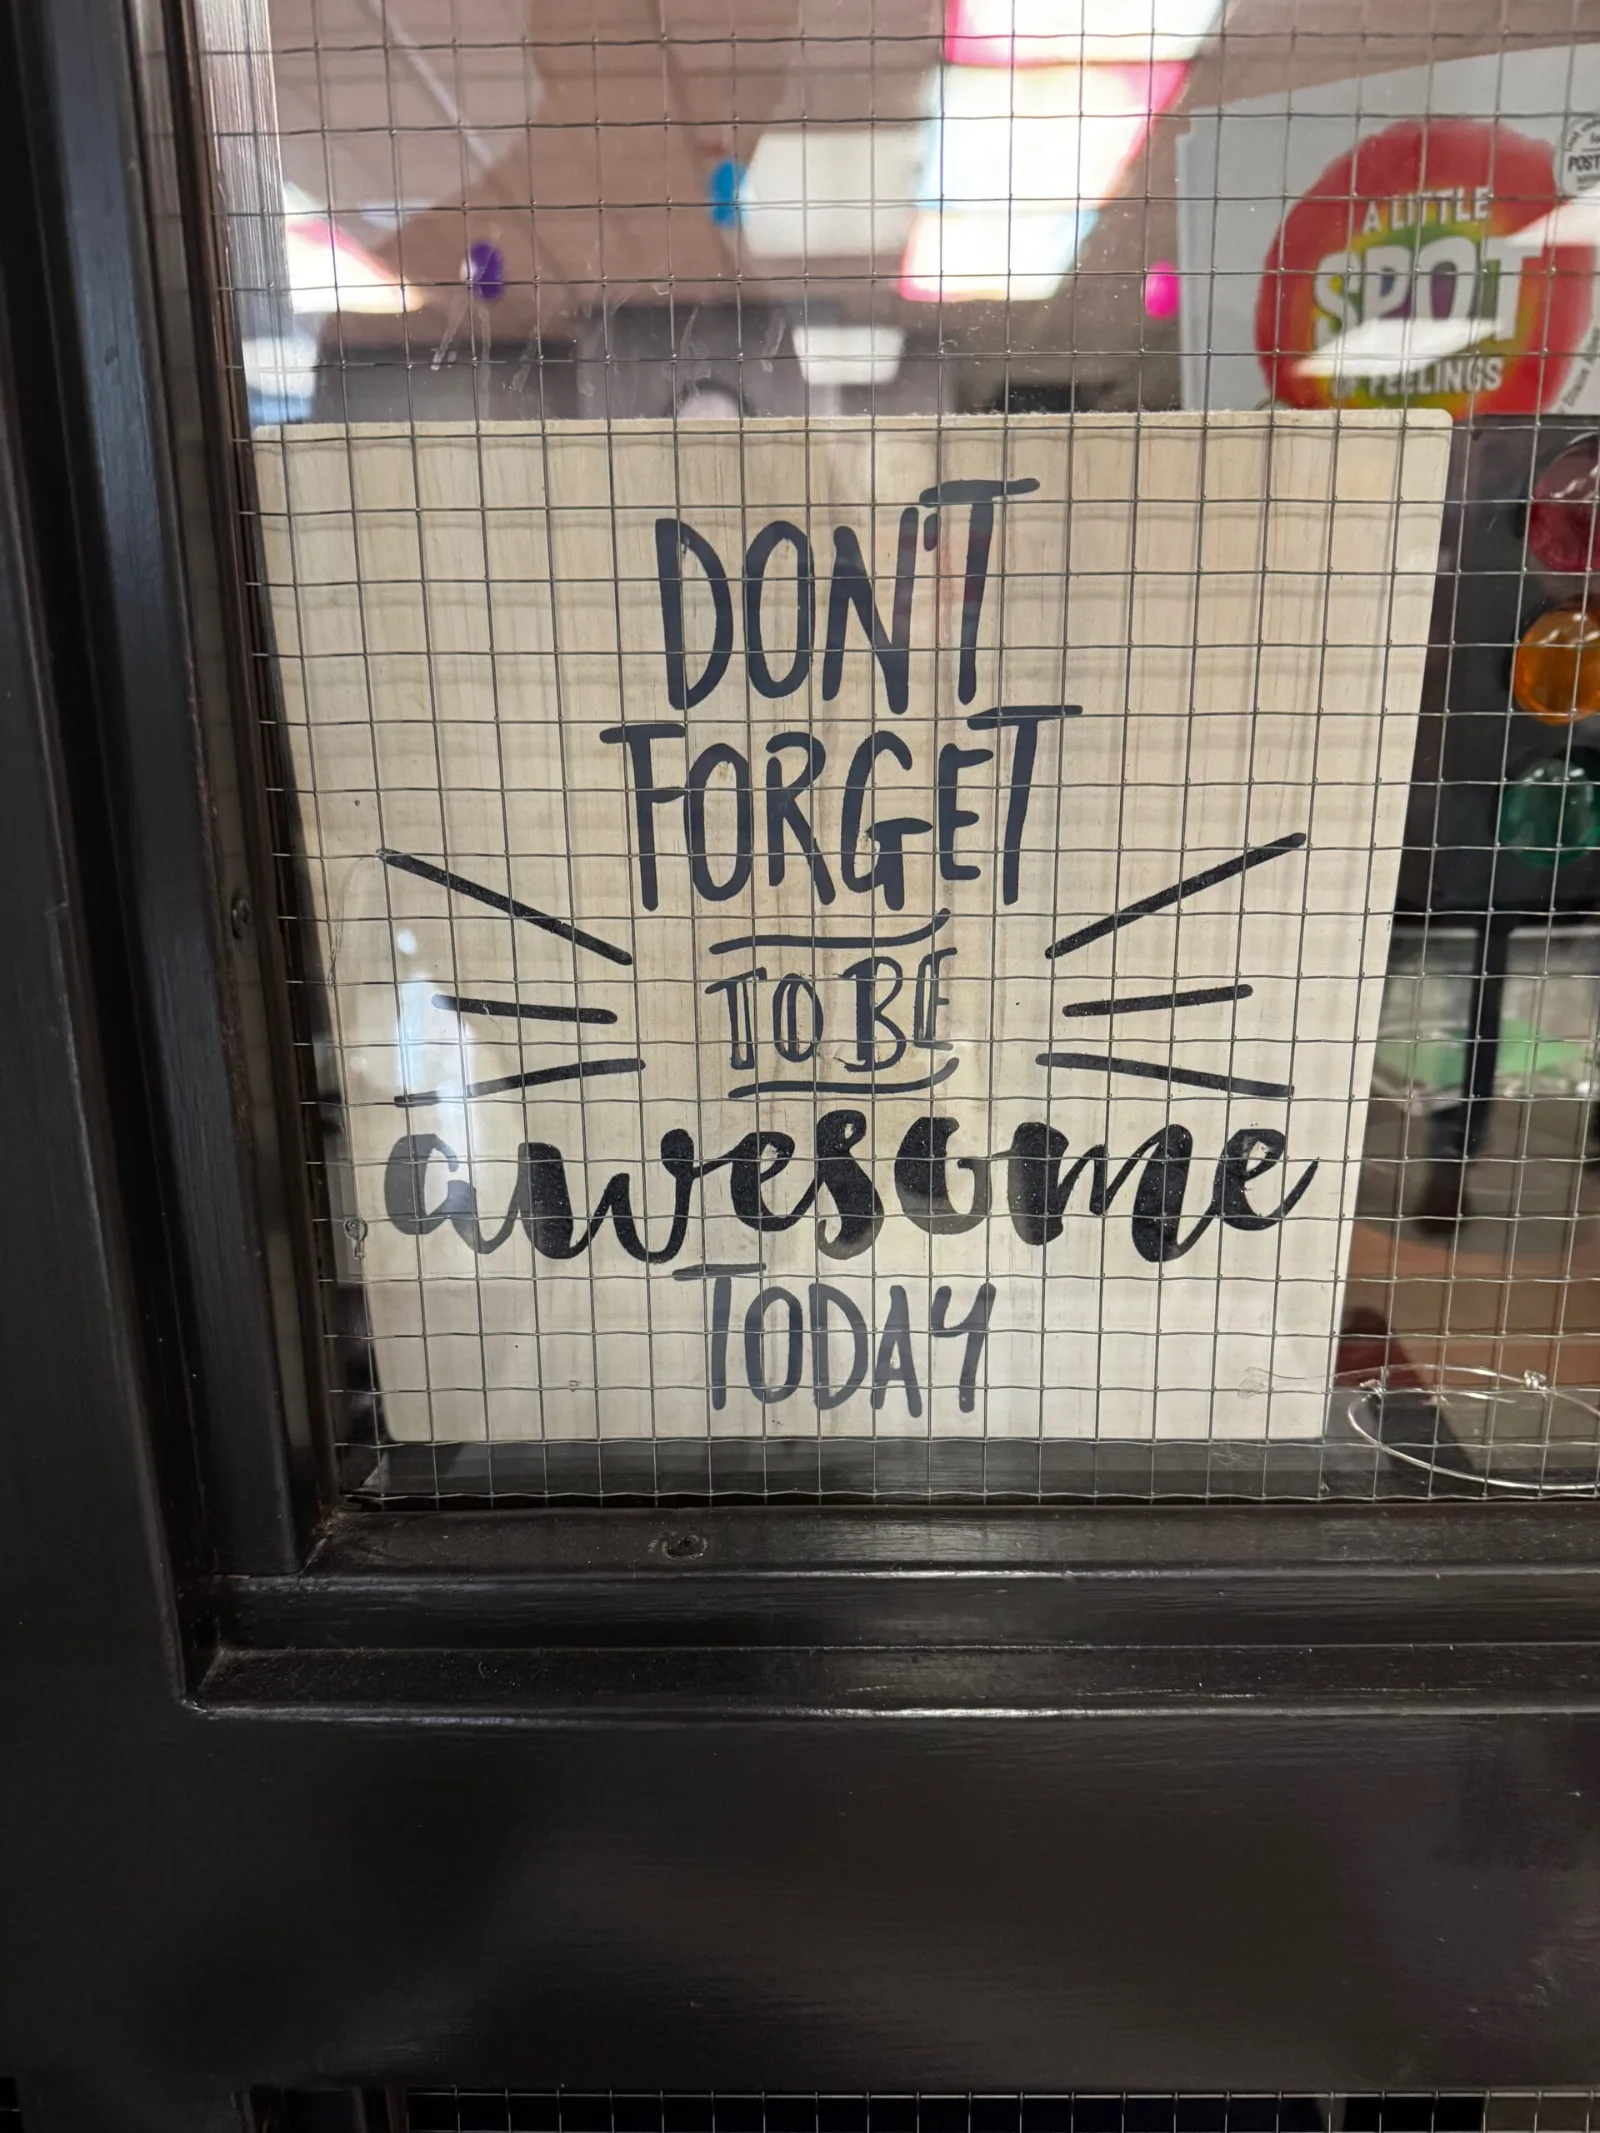 A LITTLE
SPOT
OF FEELINGS
DON'T
FORGET
TO BE
awesome
TODAY